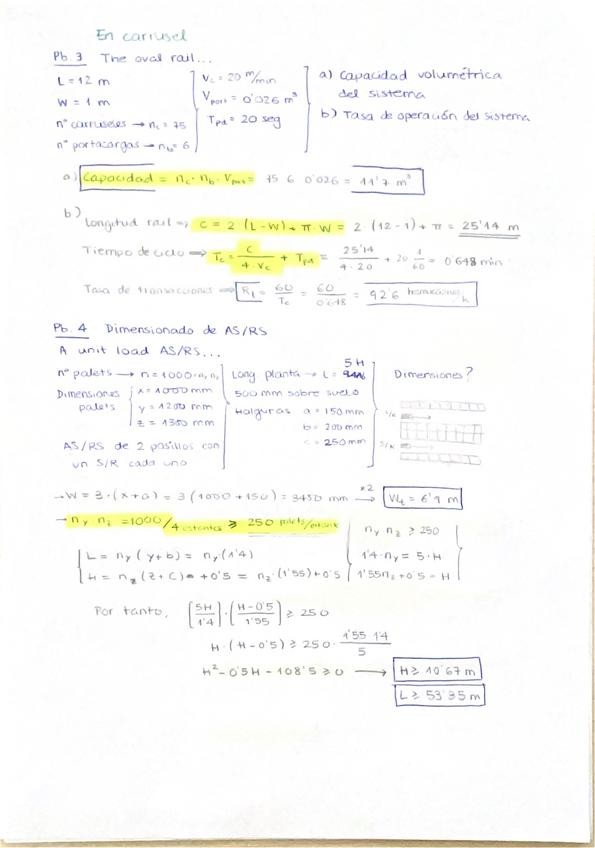 En carrusel
Pb. 3 The oval rail...
L = 12 m
W = 1 m
nº carruseles → nc = 75
nº portacargas → nb = 6
Vc = 20 m/min
Vport = 0'026 m³
Tpd = 20 seg
a) Capacidad volumétrica
del sistema
b) Tasa de operación del sistema
a) Capacidad = nc · nb · Vport = 75 6 0'026 = 11'7 m³
b)
Longitud rail → C = 2 (L-W) + π · W = 2 (12-1) + π = 25'14 m
Tiempo de ciclo ⇒ Tc = C / 4·Vc + Tpd = 25'14 / 4·20 + 20 1/60 = 0'648 min
Tasa de transacciones ⇒ Rt = 60 / Tc = 60 / 0'648 = 92'6 /h
Pb. 4 Dimensionado de AS/RS
A unit load AS/RS...
nº palets → n = 1000
Dimensiones
palets
x = 1000 mm
y = 1200 mm
z = 1300 mm
AS/RS de 2 pasillos con
un S/R cada uno
5H
Long planta → L =
500 mm sobre suelo
Holguras a = 150 mm
b = 200 mm
c = 250 mm
Dimensiones?
S/R
S/R
→ W = 3 · (x+a) = 3 (1000 + 150) = 3450 mm ×2 → Wt = 6'9 m
→ ny · nz = 1000 / 4 estantes ⩾ 250 palets/estante
L = ny (y+b) = ny (1'4)
H = nz (z+c) + 0'5 = nz (1'55) + 0'5
ny nz ⩾ 250
1'4 · ny = 5 · H
1'55nz + 0'5 = H
Por tanto, [5H / 1'4] · [H-0'5 / 1'55] ⩾ 250
H · (H-0'5) ⩾ 250 · 1'55 1'4 / 5
H² - 0'5H - 108'5 ⩾ 0 → H ⩾ 10'67 m
L ⩾ 53'35 m